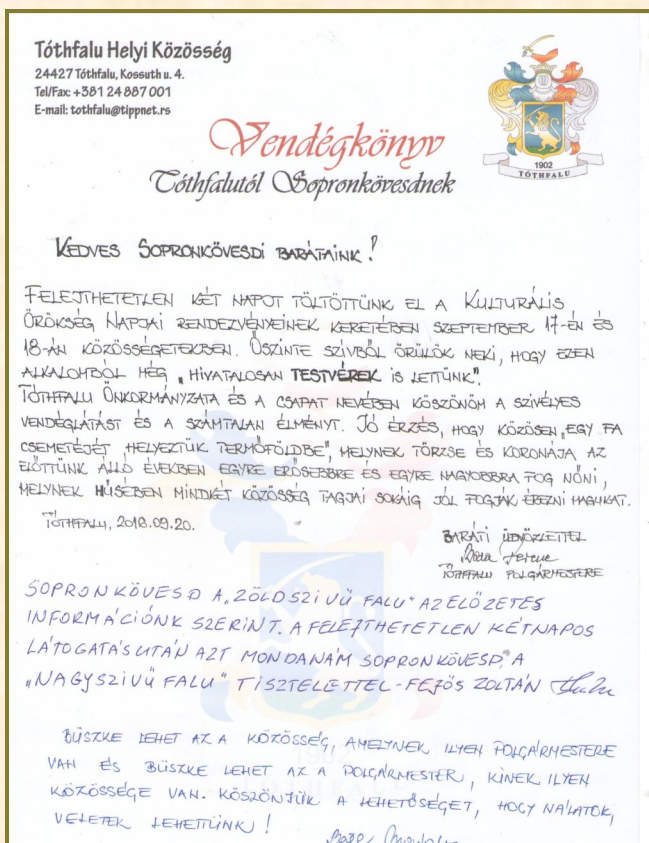 Tóthfalu Helyi Közösség
24427 Tóthfalu, Kossuth u. 4.
Tel/Fax: +381 24 887 001
E-mail: tothfalu@tippnet.rs
1902
TÓTHFALU
Vendégkönyv
Tóthfalutól Sopronkövesdnek
KEDVES SOPRONKÖVESDI BARÁTAINK!
FELEJTHETETLEN KÉT NAPOT TÖLTÖTTÜNK EL A KULTURÁLIS
ÖRÖKSÉG NAPJAI RENDEZVÉNYEINEK KERETÉBEN SZEPTEMBER 17-ÉN ÉS
18-ÁN KÖZÖSSÉGETEKBEN. ŐSZINTE SZÍVBŐL ÖRÜLÖK NEKI, HOGY EZEN
ALKALOMBÓL MÉG „HIVATALOSAN TESTVÉREK IS LETTÜNK".
TÓTHFALU ÖNKORMÁNYZATA ÉS A CSAPAT NEVÉBEN KÖSZÖNÖM A SZIVÉLYES
VENDÉGLÁTÁST ÉS A SZÁMTALAN ÉLMÉNYT. JÓ ÉRZÉS, HOGY KÖZÖSEN „EGY FA
CSEMETÉJÉT HELYEZTÜK TERMŐFÖLDBE", MELYNEK TÖRZSE ÉS KORONÁJA AZ
ELŐTTÜNK ÁLLÓ ÉVEKBEN EGYRE ERŐSEBBRE ÉS EGYRE NAGYOBBRA FOG NŐNI,
MELYNEK HŰSÉBEN MINDKÉT KÖZÖSSÉG TAGJAI SOKÁIG JÓL FOGJÁK ÉREZNI MAGUKAT.
TÓTHFALU, 2018.09.20.
BARÁTI ÜDVÖZLETTEL
Ferenc
TÓTHFALU POLGÁRMESTERE
SOPRONKÖVESD A „ZÖLDSZIVŰ FALU" AZ ELŐZETES
INFORMÁCIÓNK SZERINT. A FELEJTHETETLEN KÉTNAPOS
LÁTOGATÁS UTÁN AZT MONDANÁM SOPRONKÖVESD A
„NAGYSZIVŰ FALU" TISZTELETTEL - FEJŐS ZOLTÁN
BÜSZKE LEHET AZ A KÖZÖSSÉG, AMELYNEK ILYEN POLGÁRMESTERE
VAN ÉS BÜSZKE LEHET AZ A POLGÁRMESTER, KINEK ILYEN
KÖZÖSSÉGE VAN. KÖSZÖNJÜK A LEHETŐSÉGET, HOGY NÁLATOK,
VELETEK LEHETTÜNK!